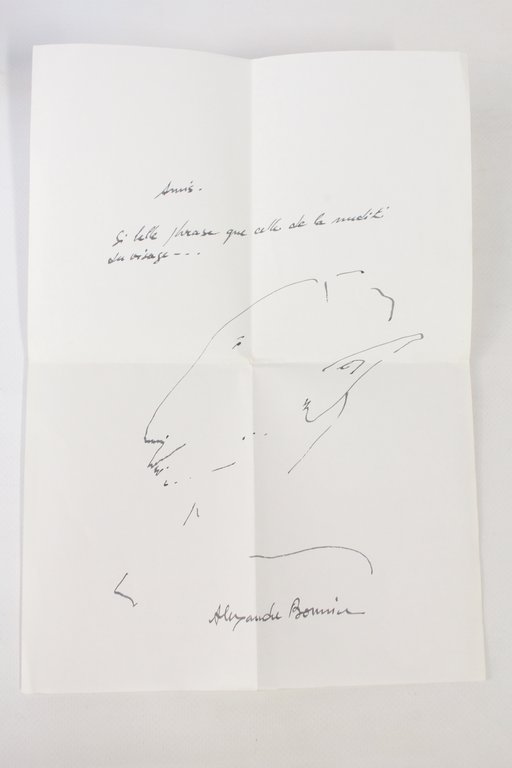 Amis.
Si belle phrase que celle de la nudité
du visage - - -
Alexandre Bonnier